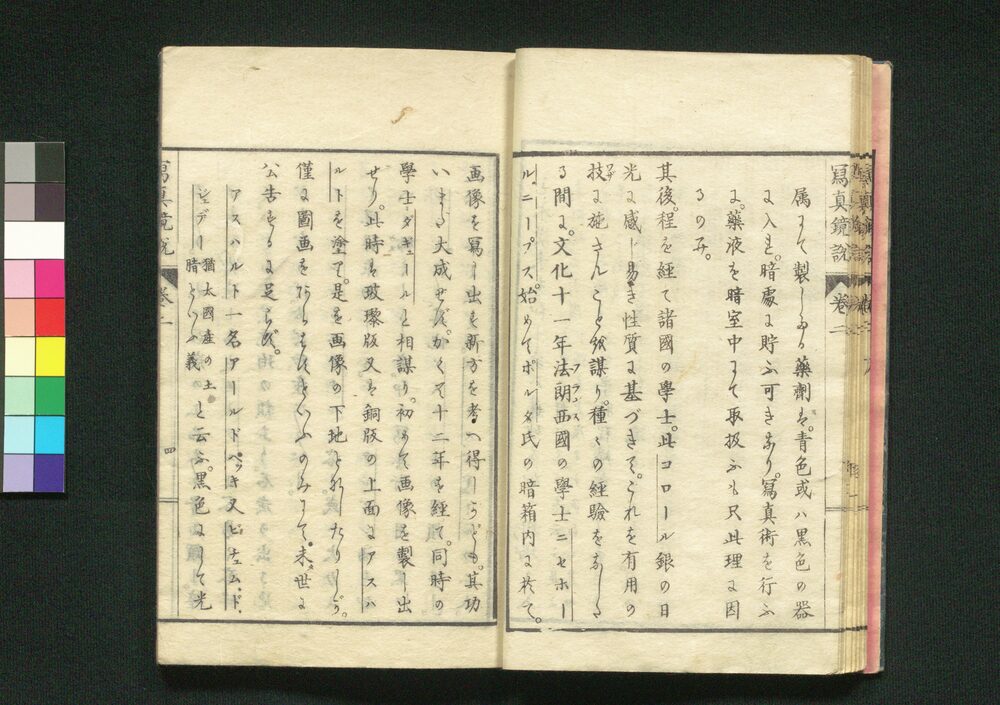 寫真鏡説 巻二
属にて製したる薬劑は。青色或ハ黒色の器
に入れ。暗處に貯ふ可きなり。寫真術を行ふ
に。藥液を暗室中にて取扱ふも只此理に因
るのみ。
其後。程を経て諸國の學士。此コロール銀の日
光に感じ易き性質に基づきて。これを有用の
技に施さんことを謀り。種々の経験をなした
る間に。文化十一年法朗西國の學士ニセホー
フランス
ル。ニープス。始めてポルタ氏の暗箱内に於て。
画像を寫し出す新方を考へ得しかども。其功
いまだ大成せず。かくて十二年を経て。同時の
學士ダギュールと相謀り。初めて画像を製し出
せり。此時は玻瓈版又は銅版の上面にアスハ
ルトを塗て。是を画像の下地となしたりしが。
僅に圖画をあらはすといふのみにて。未世に
公告するに足らず。
アスハルト一名アールドペッキ又ビチュム。ド。
ジュデー
猶太國産の土
瀝といふ義
と云ふ。黒色にして光
寫真鏡説 巻二
四